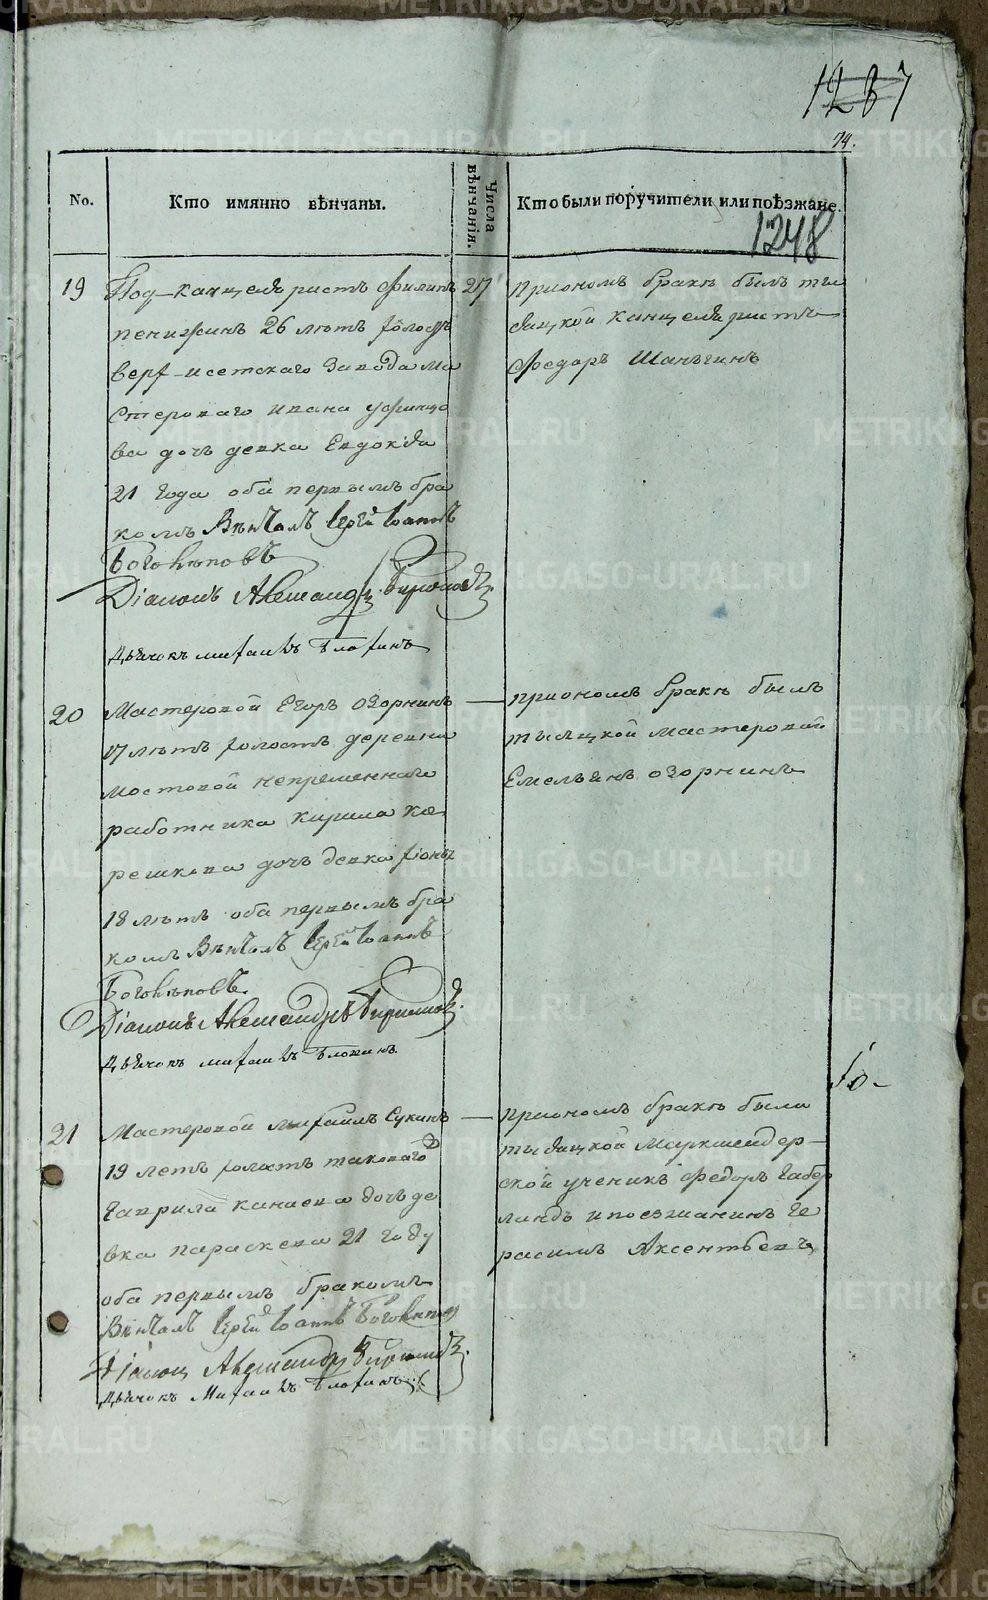 1287
74.
No.
Кто имянно вѣнчаны.
Числа вѣнчанія.
Кто были поручители или поѣзжане.
1248
19
Под-канцеляристъ Филипъ
пенигинъ 26 лѣтъ холостъ
верх-исетскаго завода ма
стероваго ивана
ва дочь девка Евдокія
21 года оба первымъ бра
комъ Вѣнчалъ Іерей Іоаннъ
Боголѣповъ
Діаконъ Александръ
Дьячокъ михаилъ Блохинъ
27
приономъ бракѣ былъ ты
сяцкой канцеляристъ
Федоръ Шаньгинъ
20
Мастеровой Егоръ Озорнинъ
17 лѣтъ холостъ деревни
мостовой непременнаго
работника кирила ка
решкова дочь девка
18 лѣтъ оба первымъ бра
комъ Вѣнчалъ Іерей Іоаннъ
Боголѣповъ.
Діаконъ Александръ
Дьячокъ михаилъ Блохинъ
—
приономъ бракѣ былъ
тысяцкой мастеровой
Емельянъ озорнинъ
21
Мастеровой михаилъ Сукинъ
19 летъ холостъ таковаго
гаврила канаева дочь де
вка параскева 21 году
оба первымъ бракомъ
Вѣнчалъ Іерей Іоаннъ Боголѣповъ
Діаконъ Александръ
Дьячокъ Михаилъ Блохинъ
—
приономъ бракѣ были
тысяцкой Маркшейдер-
ской ученикъ Федоръ габер
ландъ и поезжанинъ ге
расимъ Аксентьевъ
METRIKI.GASO-URAL.RU